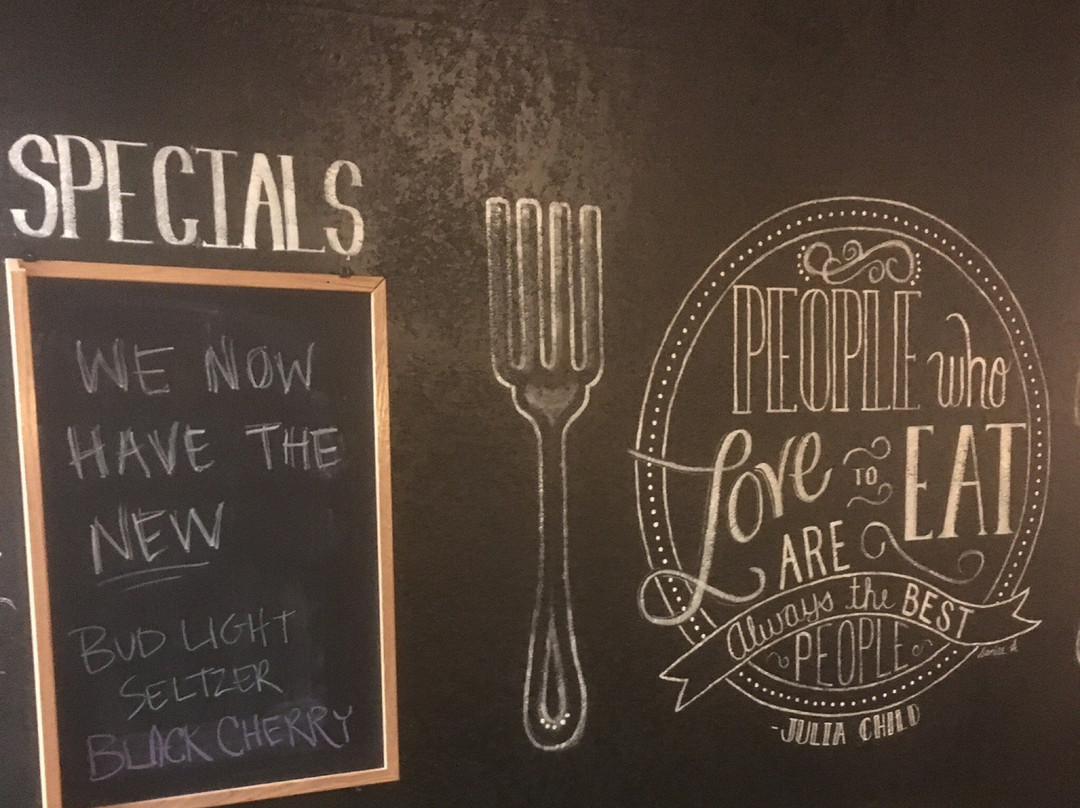 SPECIALS
WE NOW
HAVE THE
NEW
BUD LIGHT
SELTZER
BLACK CHERRY
PEOPLE who
Love TO EAT
ARE
Always the BEST
PEOPLE
-JULIA CHILD